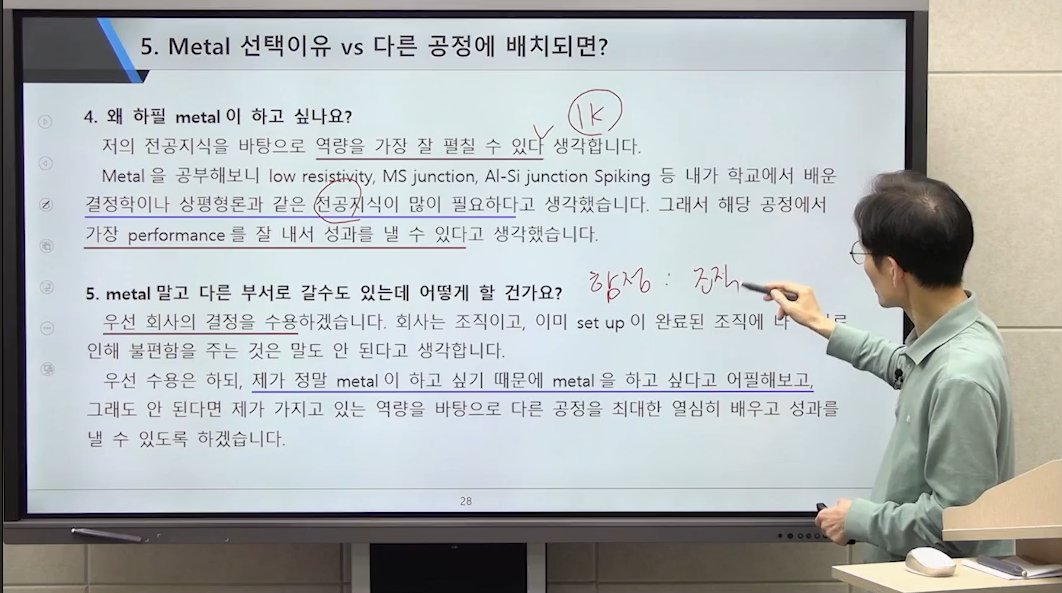 5. Metal 선택이유 vs 다른 공정에 배치되면?
4. 왜 하필 metal이 하고 싶나요?
1K
저의 전공지식을 바탕으로 역량을 가장 잘 펼칠 수 있다 생각합니다.
Metal을 공부해보니 low resistivity, MS junction, Al-Si junction Spiking 등 내가 학교에서 배운
결정학이나 상평형론과 같은 전공지식이 많이 필요하다고 생각했습니다. 그래서 해당 공정에서
가장 performance를 잘 내서 성과를 낼 수 있다고 생각했습니다.
함정 : 조직
5. metal 말고 다른 부서로 갈수도 있는데 어떻게 할 건가요?
우선 회사의 결정을 수용하겠습니다. 회사는 조직이고, 이미 set up이 완료된 조직에
인해 불편함을 주는 것은 말도 안 된다고 생각합니다.
우선 수용은 하되, 제가 정말 metal이 하고 싶기 때문에 metal을 하고 싶다고 어필해보고,
그래도 안 된다면 제가 가지고 있는 역량을 바탕으로 다른 공정을 최대한 열심히 배우고 성과를
낼 수 있도록 하겠습니다.
28